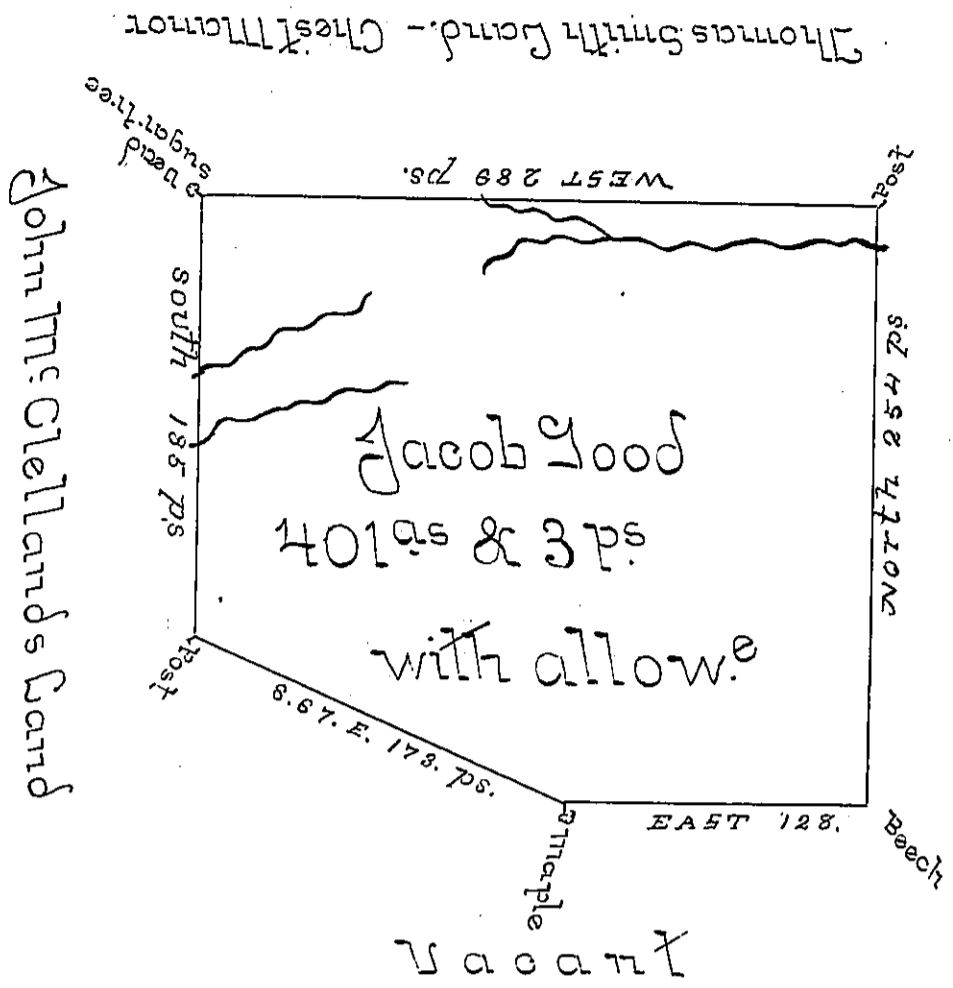 Thomas Smith Land. - Chest Manor
Dead
sugar tree
WEST 289 ps.
Post
John Mc Clellands Land
SOUTH 185 ps
NORTH 254 ps
Jacob Good
401as & 3 ps.
with allow.e
Post
S. 67. E. 173. ps.
EAST 128.
Beech
Maple
Vacant